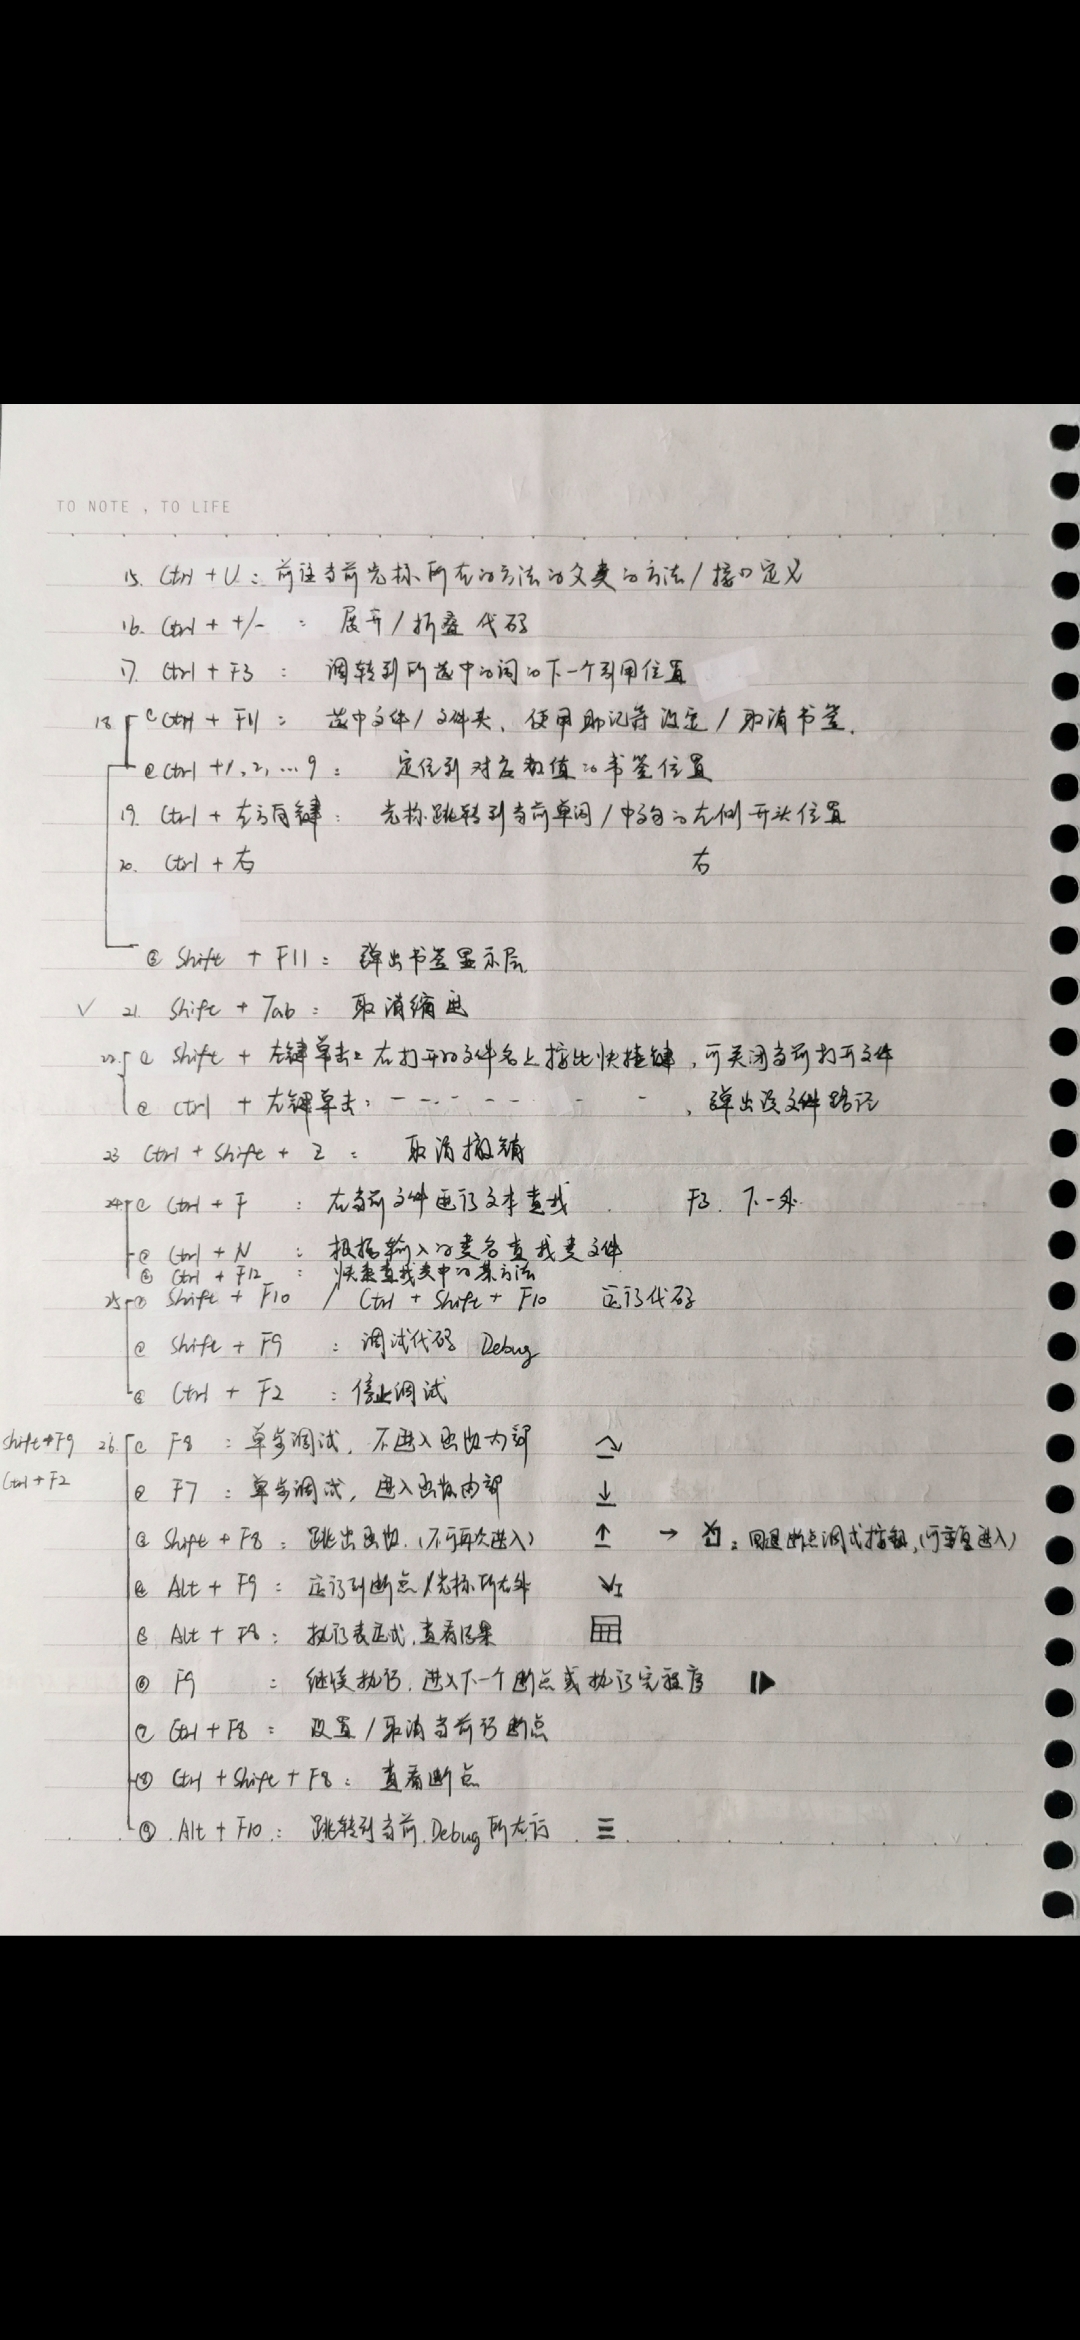 TO NOTE , TO LIFE
15. Ctrl + U : 前往当前光标所在的方法的父类的方法 / 接口定义
16. Ctrl + +/- : 展开 / 折叠代码
17. Ctrl + F3 : 调转到所选中的词的下一个引用位置
18. ① Ctrl + F11 : 选中文件 / 文件夹, 使用助记符设定 / 取消书签.
② Ctrl + 1, 2, ... 9 : 定位到对应数值的书签位置
19. Ctrl + 左方向键 : 光标跳转到当前单词 / 中文句的左侧开头位置
20. Ctrl + 右 右
③ Shift + F11 : 弹出书签显示层
✓ 21. Shift + Tab : 取消缩进
22. ① Shift + 左键单击 : 在打开的文件名上按此快捷键, 可关闭当前打开文件
② Ctrl + 左键单击 : - - - - - - - , 弹出该文件路径
23 Ctrl + Shift + Z : 取消撤销
24. ① Ctrl + F : 在当前文件进行文本查找 F3. 下一处
② Ctrl + N : 根据输入的类名查找类文件
③ Ctrl + F12 : 快速查找类中的某方法
25. ① Shift + F10 / Ctrl + Shift + F10 运行代码
② Shift + F9 : 调试代码 Debug
③ Ctrl + F2 : 停止调试
Shift+F9 26. ① F8 : 单步调试, 不进入函数内部
Ctrl+F2 ② F7 : 单步调试, 进入函数内部
③ Shift + F8 : 跳出函数. (不可再次进入) → : 回退断点调试按钮, (可重复进入)
④ Alt + F9 : 运行到断点 / 光标所在处
⑤ Alt + F8 : 执行表达式, 查看结果
⑥ F9 : 继续执行, 进入下一个断点或执行完程序
⑦ Ctrl + F8 : 设置 / 取消当前行断点
⑧ Ctrl + Shift + F8 : 查看断点
⑨ Alt + F10 : 跳转到当前 Debug 所在行